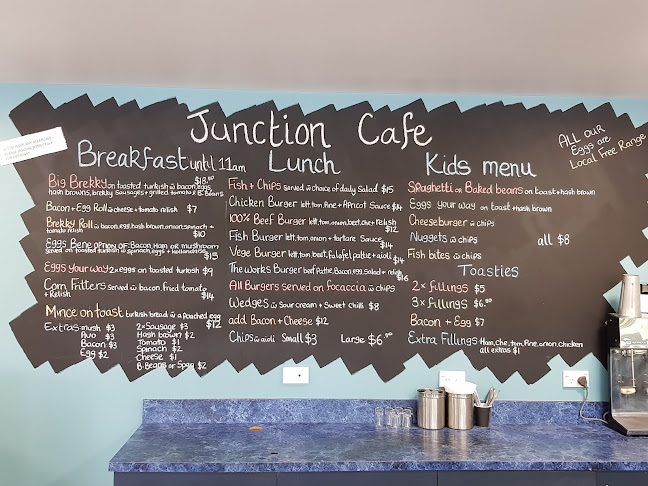 Junction Cafe
ALL OUR
Eggs are
Local Free Range
Breakfast until 11am
$18.50
Big Brekky on toasted turkish w bacon, eggs,
hash browns, brekky sausages + grilled tomato + B.Beans
Bacon + Egg Roll w cheese + tomato relish $7
Brekky Roll w bacon, egg, hash brown, onion, spinach +
tomato relish $10
Eggs Bene option of: Bacon, Ham or mushroom
served on toasted turkish w spinach, eggs + Hollandaise $15
Eggs your way 2x eggs on toasted turkish $9
Corn Fritters served w bacon, fried tomato
+ Relish $14
Mince on toast turkish bread w a poached egg
$12
Extras mush $3
Avo $3
Bacon $3
Egg $2
2x Sausage $3
Hash brown $2
Tomato $1
Spinach $2
Cheese $1
B.Beans or Spag $2
Lunch
Fish + Chips served w choice of daily salad $15
Chicken Burger lett, tom, Pine + Apricot Sauce $14
100% Beef Burger lett, tom, onion, beet, che + relish
$12
Fish Burger lett, tom, onion + tartare Sauce
$14
Vege Burger lett, tom, beet, falafel, pattie + aioli
$14
The works Burger beef Pattie, Bacon, egg, Salad + relish
$16
All Burgers served on Focaccia w chips
Wedges w Sour cream + Sweet Chilli $8
add Bacon + Cheese $12
Chips w aioli Small $3 Large $6.50
Kids menu
Spaghetti or Baked beans on toast + hash brown
Eggs your way on toast + hash brown
Cheeseburger w chips
Nuggets w chips all $8
Fish bites w chips
Toasties
2x fillings $5
3x fillings $6.50
Bacon + Egg $7
Extra Fillings: Ham, Che, tom, Pine, onion, Chicken
all extras $1